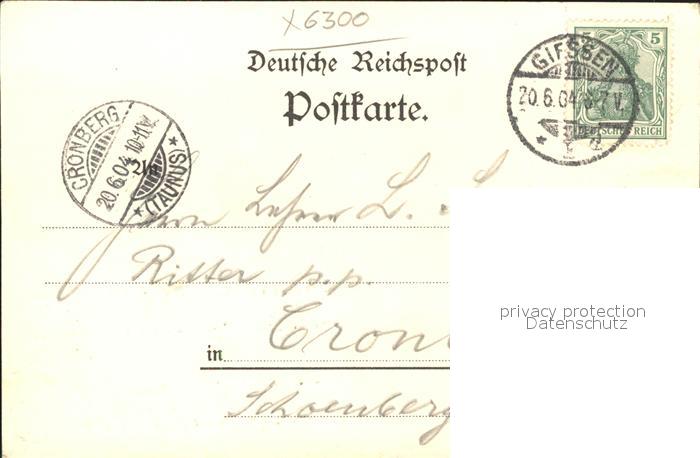 X6300
Deutsche Reichspost
Postkarte.
GIESSEN
20.6.04 6-7 V.
5
DEUTSCHES REICH
CRONBERG
20.6.04 10-11 V.
★(TAUNUS)★
Herrn Lehrer L.
Ritter p.p.
in Cron
Schoenberg
privacy protection
Datenschutz